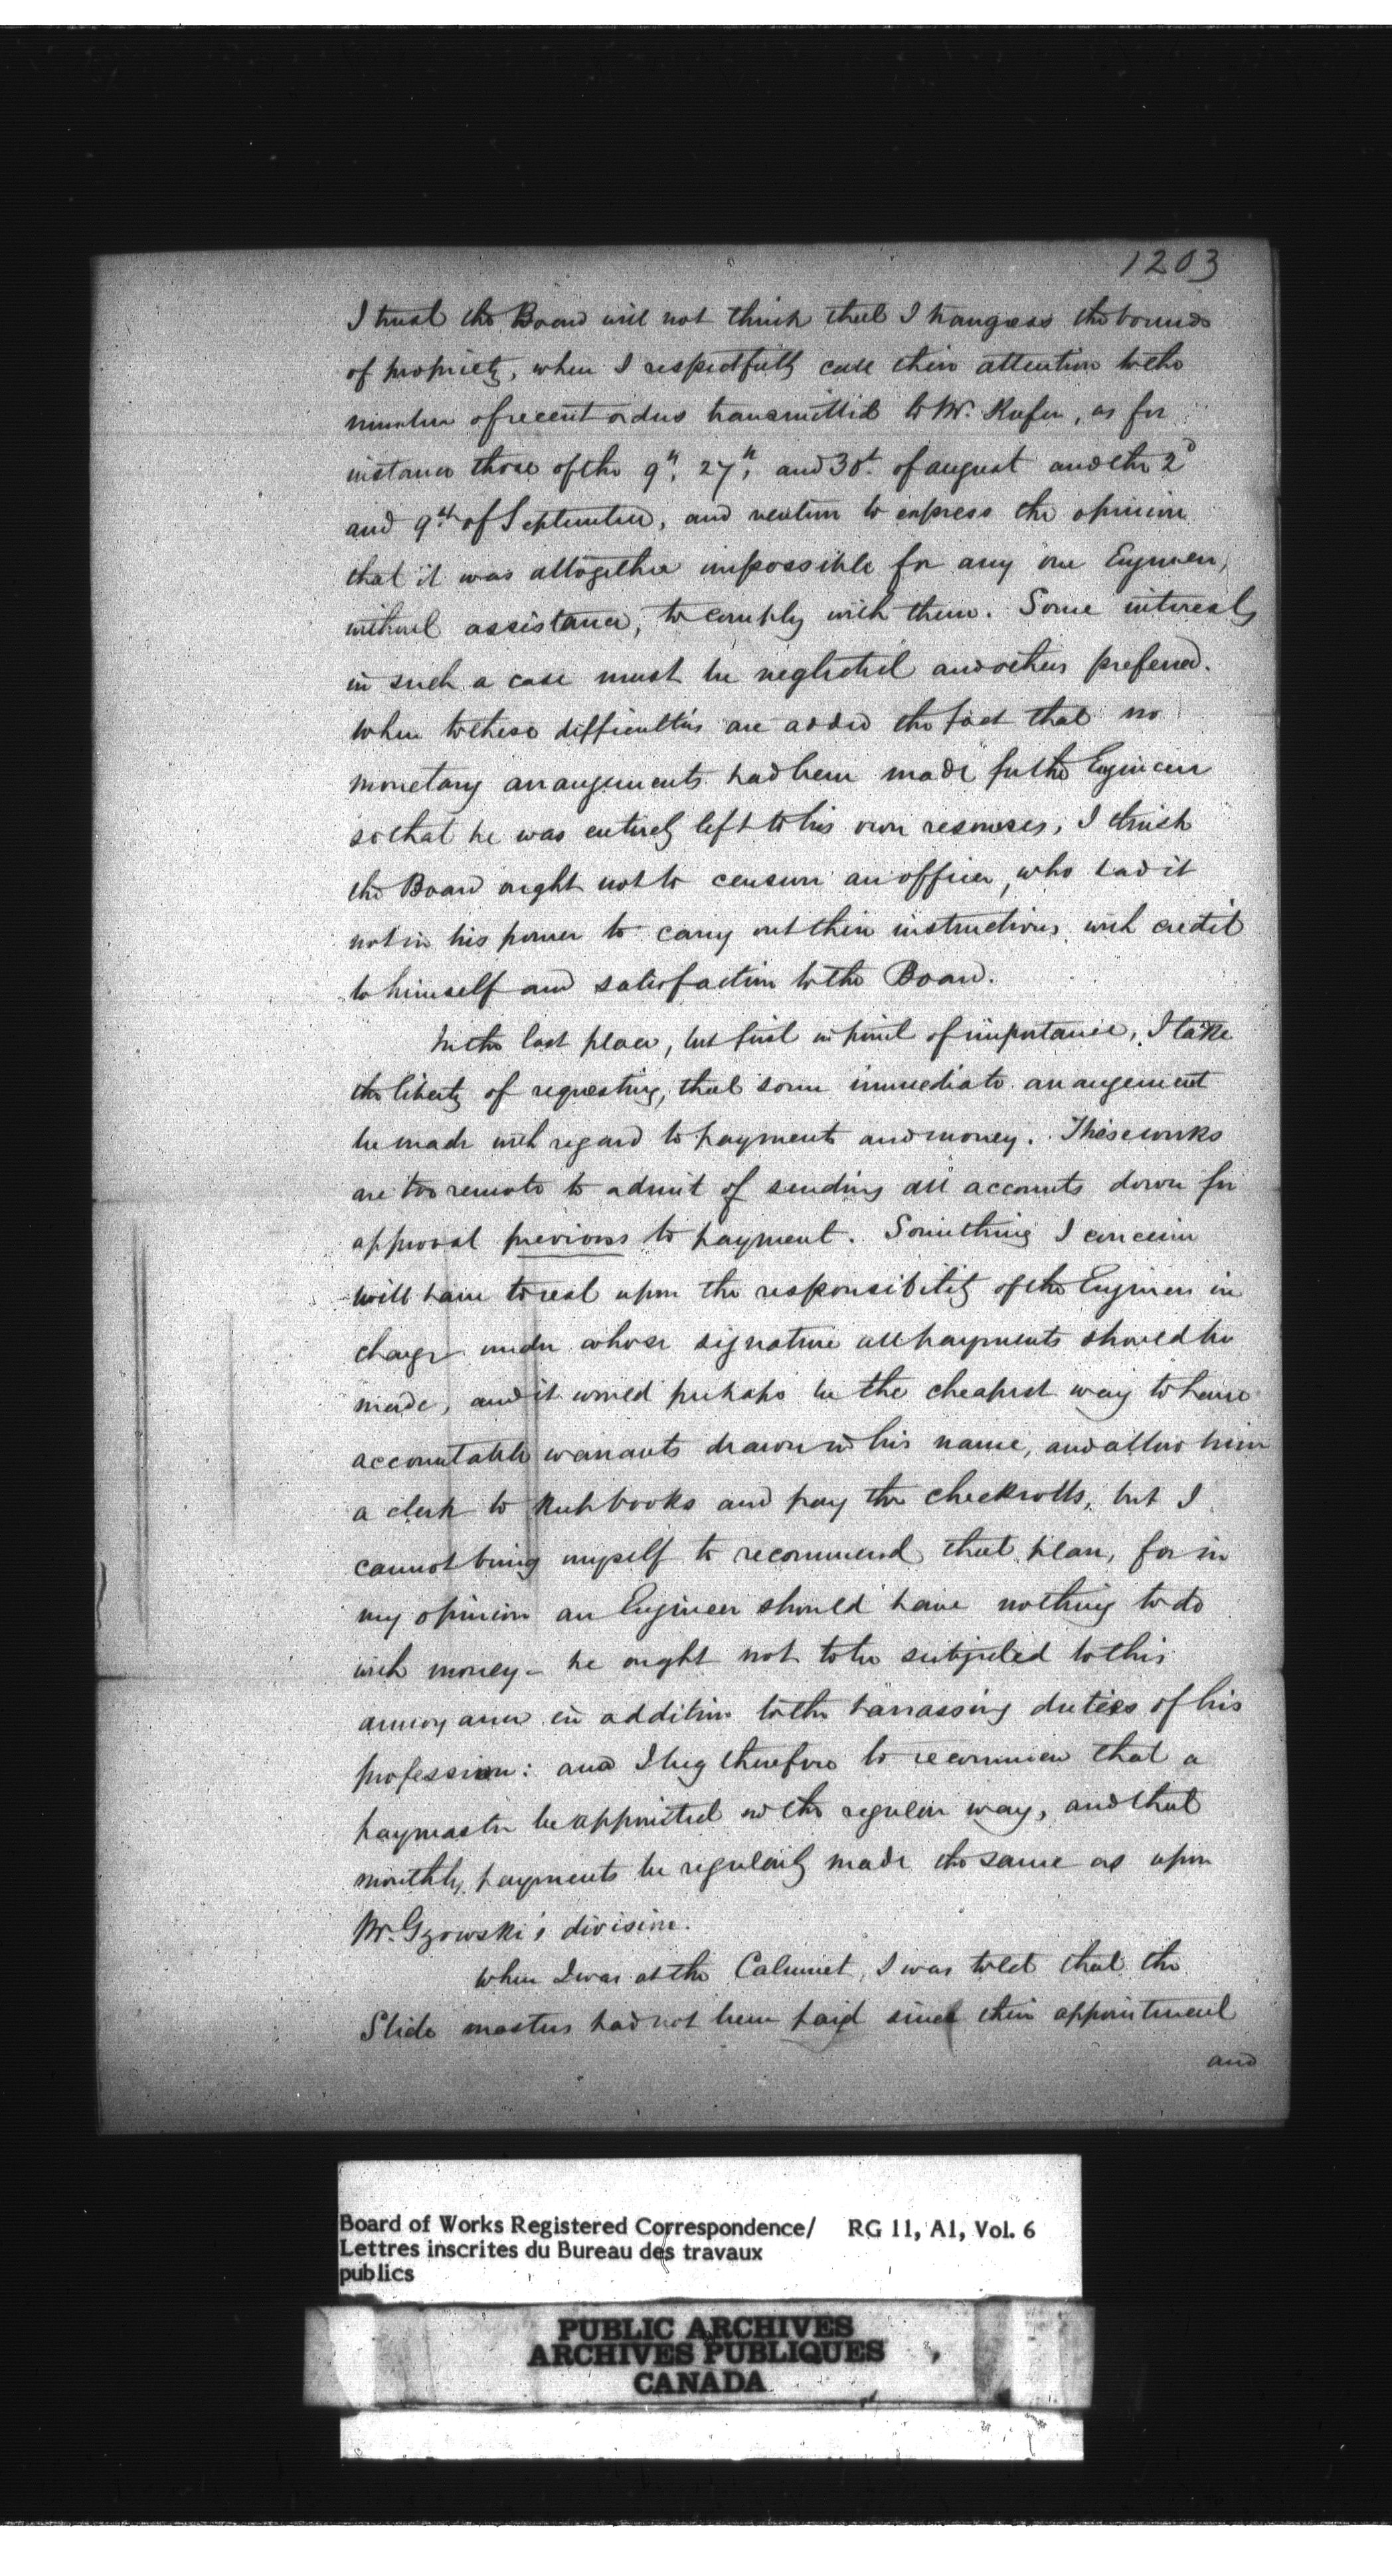 1203
I trust the Board will not think that I transgress the bounds
of propriety, when I respectfully call their attention to the
number of recent orders transmitted to Mr. Rufer, as for
instance those of the 9th, 27th, and 30t. of August and the 2d
and 9th of September, and venture to express the opinion
that it was altogether impossible for any one Engineer,
without assistance, to comply with them. Some interests
in such a case must be neglected and others preferred.
When to these difficulties are added the fact that no
monetary arrangements had been made for the Engineer
so that he was entirely left to his own resources, I think
the Board ought not to censure an officer, who had it
not in his power to carry out their instructions with credit
to himself and satisfaction to the Board.
In the last place, but first in point of importance, I take
the liberty of requesting, that some immediate arrangement
be made with regard to payments and money. These works
are too remote to admit of sending all accounts down for
approval previous to payment. Something I conceive
will have to rest upon the responsibility of the Engineer in
charge under whose signature all payments should be
made, and it would perhaps be the cheapest way to have
accountable warrants drawn in his name, and allow him
a clerk to keep books and pay the checkrolls, but I
cannot bring myself to recommend that plan, for in
my opinion an Engineer should have nothing to do
with money - he ought not to be subjected to this
annoyance in addition to the harrassing duties of his
profession: and I beg therefore to recommend that a
paymaster be appointed in the regular way, and that
monthly payments be regularly made the same as upon
Mr. Gzowski's division.
When I was at the Calumet, I was told that the
Slide masters had not been paid since their appointment
and
Board of Works Registered Correspondence/ RG 11, A1, Vol. 6
Lettres inscrites du Bureau des travaux
publics
PUBLIC ARCHIVES
ARCHIVES PUBLIQUES
CANADA